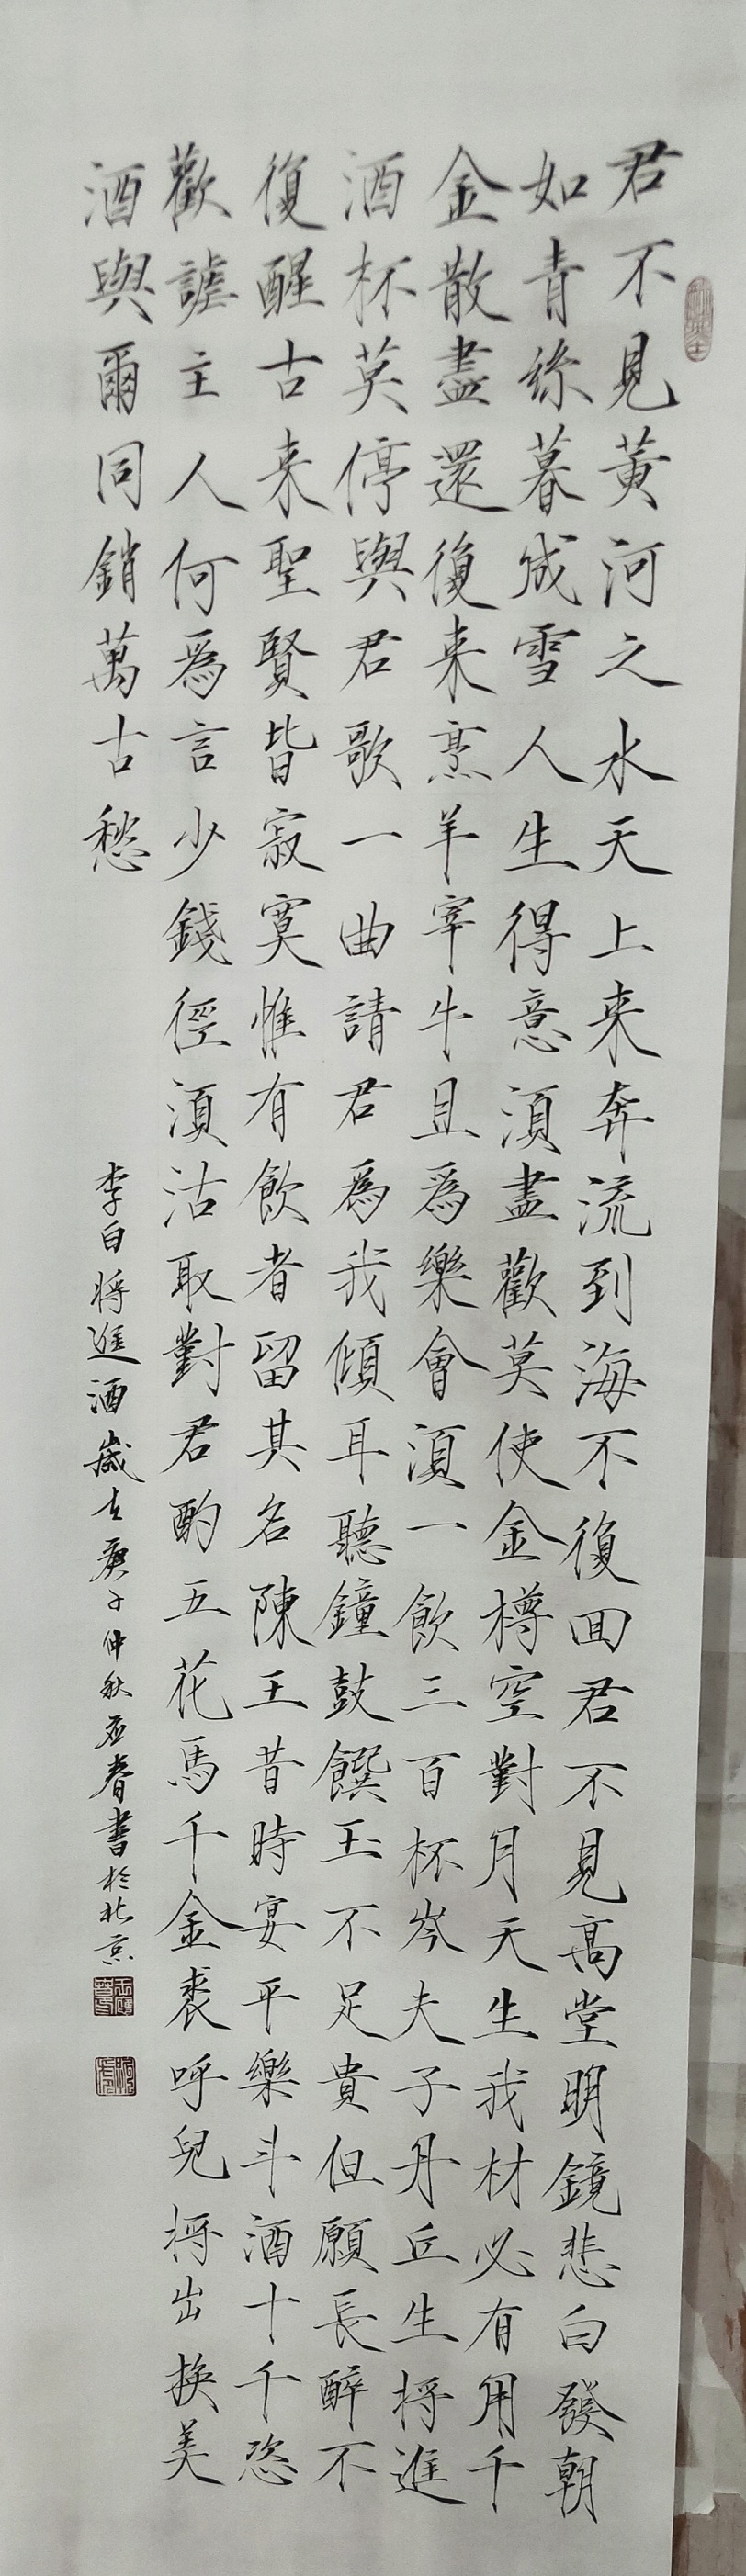 君不見黃河之水天上来奔流到海不復回君不見高堂明鏡悲白發朝
如青絲暮成雪人生得意須盡歡莫使金樽空對月天生我材必有用千
金散盡還復来烹羊宰牛且為樂會須一飲三百杯岑夫子丹丘生將進
酒杯莫停與君歌一曲請君為我傾耳聽鐘鼓饌玉不足貴但願長醉不
復醒古来聖賢皆寂寞惟有飲者留其名陳王昔時宴平樂斗酒十千恣
歡謔主人何為言少錢徑須沽取對君酌五花馬千金裘呼兒將出換美
酒與爾同銷萬古愁
李白將進酒歲在庚子仲秋春書於北京